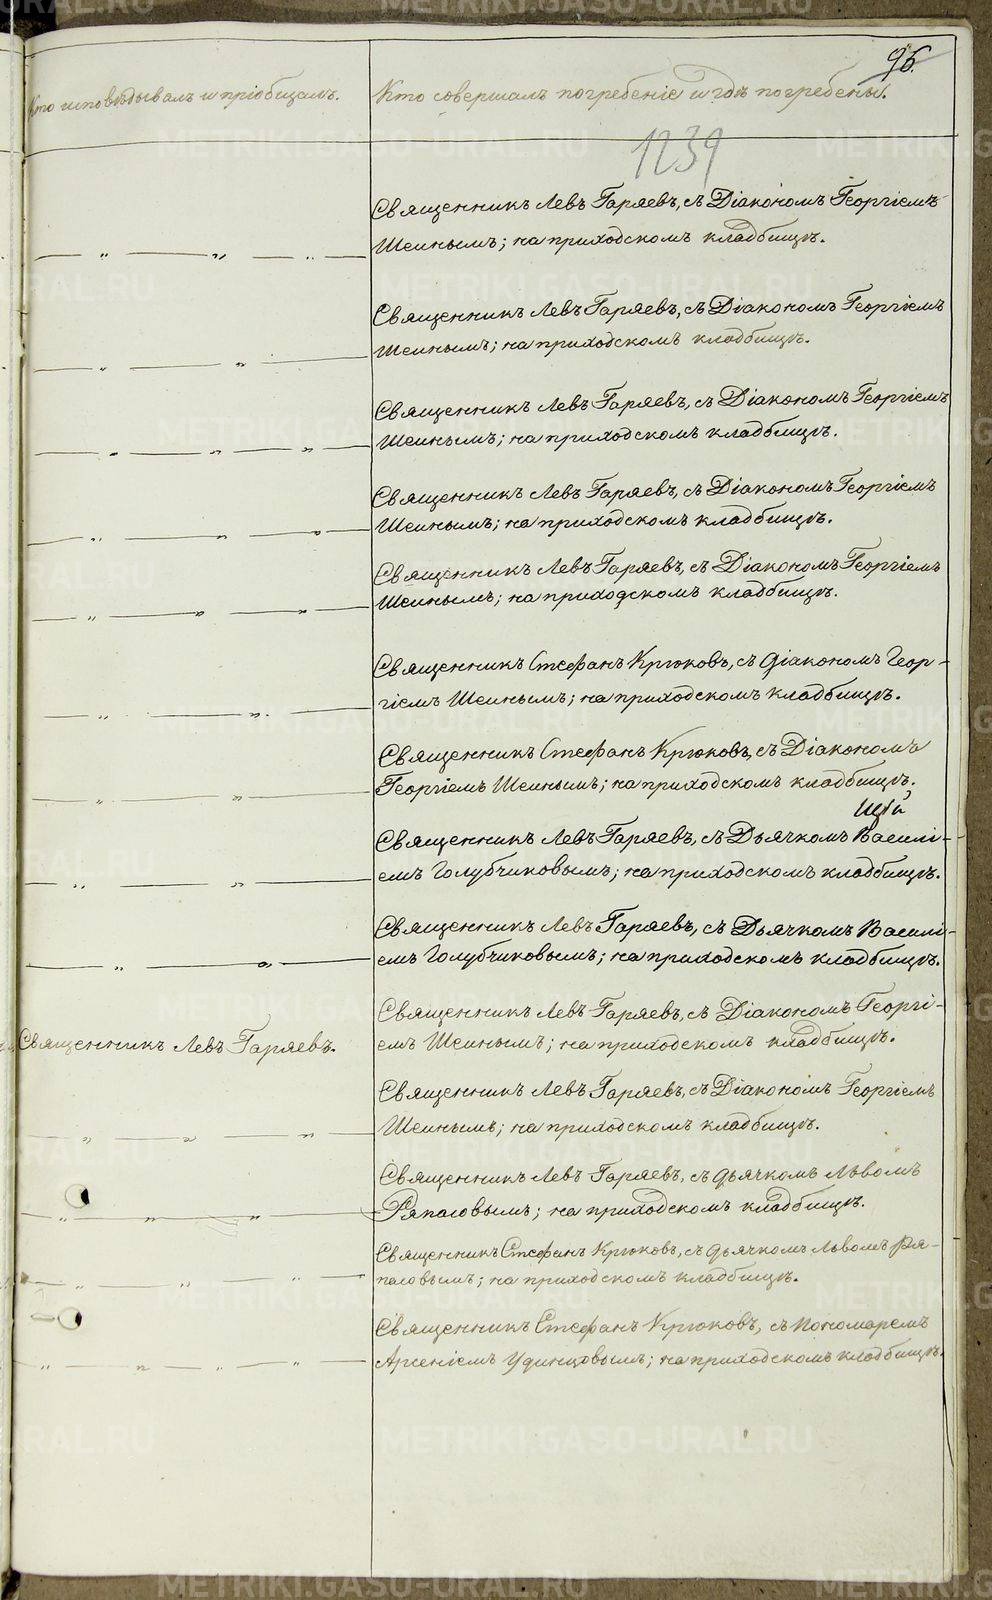 96.
Кто исповѣдывалъ и пріобщалъ.
Кто совершалъ погребеніе и гдѣ погребены.
1239
Священникъ Левъ Гаряевъ, съ Діакономъ Георгіемъ
Шеинымъ; на приходскомъ кладбищѣ.
Священникъ Левъ Гаряевъ, съ Діакономъ Георгіемъ
Шеинымъ; на приходскомъ кладбищѣ.
Священникъ Левъ Гаряевъ, съ Діакономъ Георгіемъ
Шеинымъ; на приходскомъ кладбищѣ.
Священникъ Левъ Гаряевъ, съ Діакономъ Георгіемъ
Шеинымъ; на приходскомъ кладбищѣ.
Священникъ Левъ Гаряевъ, съ Діакономъ Георгіемъ
Шеинымъ; на приходскомъ кладбищѣ.
Священникъ Стефанъ Крюковъ, съ діакономъ Геор-
гіемъ Шеинымъ; на приходскомъ кладбищѣ.
Священникъ Стефанъ Крюковъ, съ Діакономъ
Георгіемъ Шеинымъ; на приходскомъ кладбищѣ.
Священникъ Левъ Гаряевъ, съ Дьячкомъ Василі-
емъ Голубчиковымъ; на приходскомъ кладбищѣ.
Священникъ Левъ Гаряевъ, съ Дьячкомъ Василі-
емъ Голубчиковымъ; на приходскомъ кладбищѣ.
Священникъ Левъ Гаряевъ.
Священникъ Левъ Гаряевъ, съ Діакономъ Георгі-
емъ Шеинымъ; на приходскомъ кладбищѣ.
Священникъ Левъ Гаряевъ, съ Діакономъ Георгіемъ
Шеинымъ; на приходскомъ кладбищѣ.
Священникъ Левъ Гаряевъ, съ дьячкомъ Львомъ
Ряпасовымъ; на приходскомъ кладбищѣ.
Священникъ Стефанъ Крюковъ, съ дьячкомъ Львомъ Ря-
пасовымъ; на приходскомъ кладбищѣ.
Священникъ Стефанъ Крюковъ, съ пономаремъ
Арсеніемъ Удинцовымъ; на приходскомъ кладбищѣ.